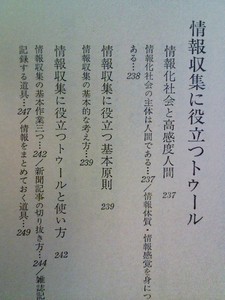 情報収集に役立つトゥール
情報化社会と高感度人間 237
情報化社会の主体は人間である…237／情報体質・情報感覚を身につ
ある…238
情報収集に役立つ基本原則 239
情報収集の基本的な考え方…239
情報収集に役立つトゥールと使い方 242
情報収集の基本作業三つ…242／新聞記事の切り抜き方…244／雑誌記
記録する道具…247／情報をまとめておく道具…249